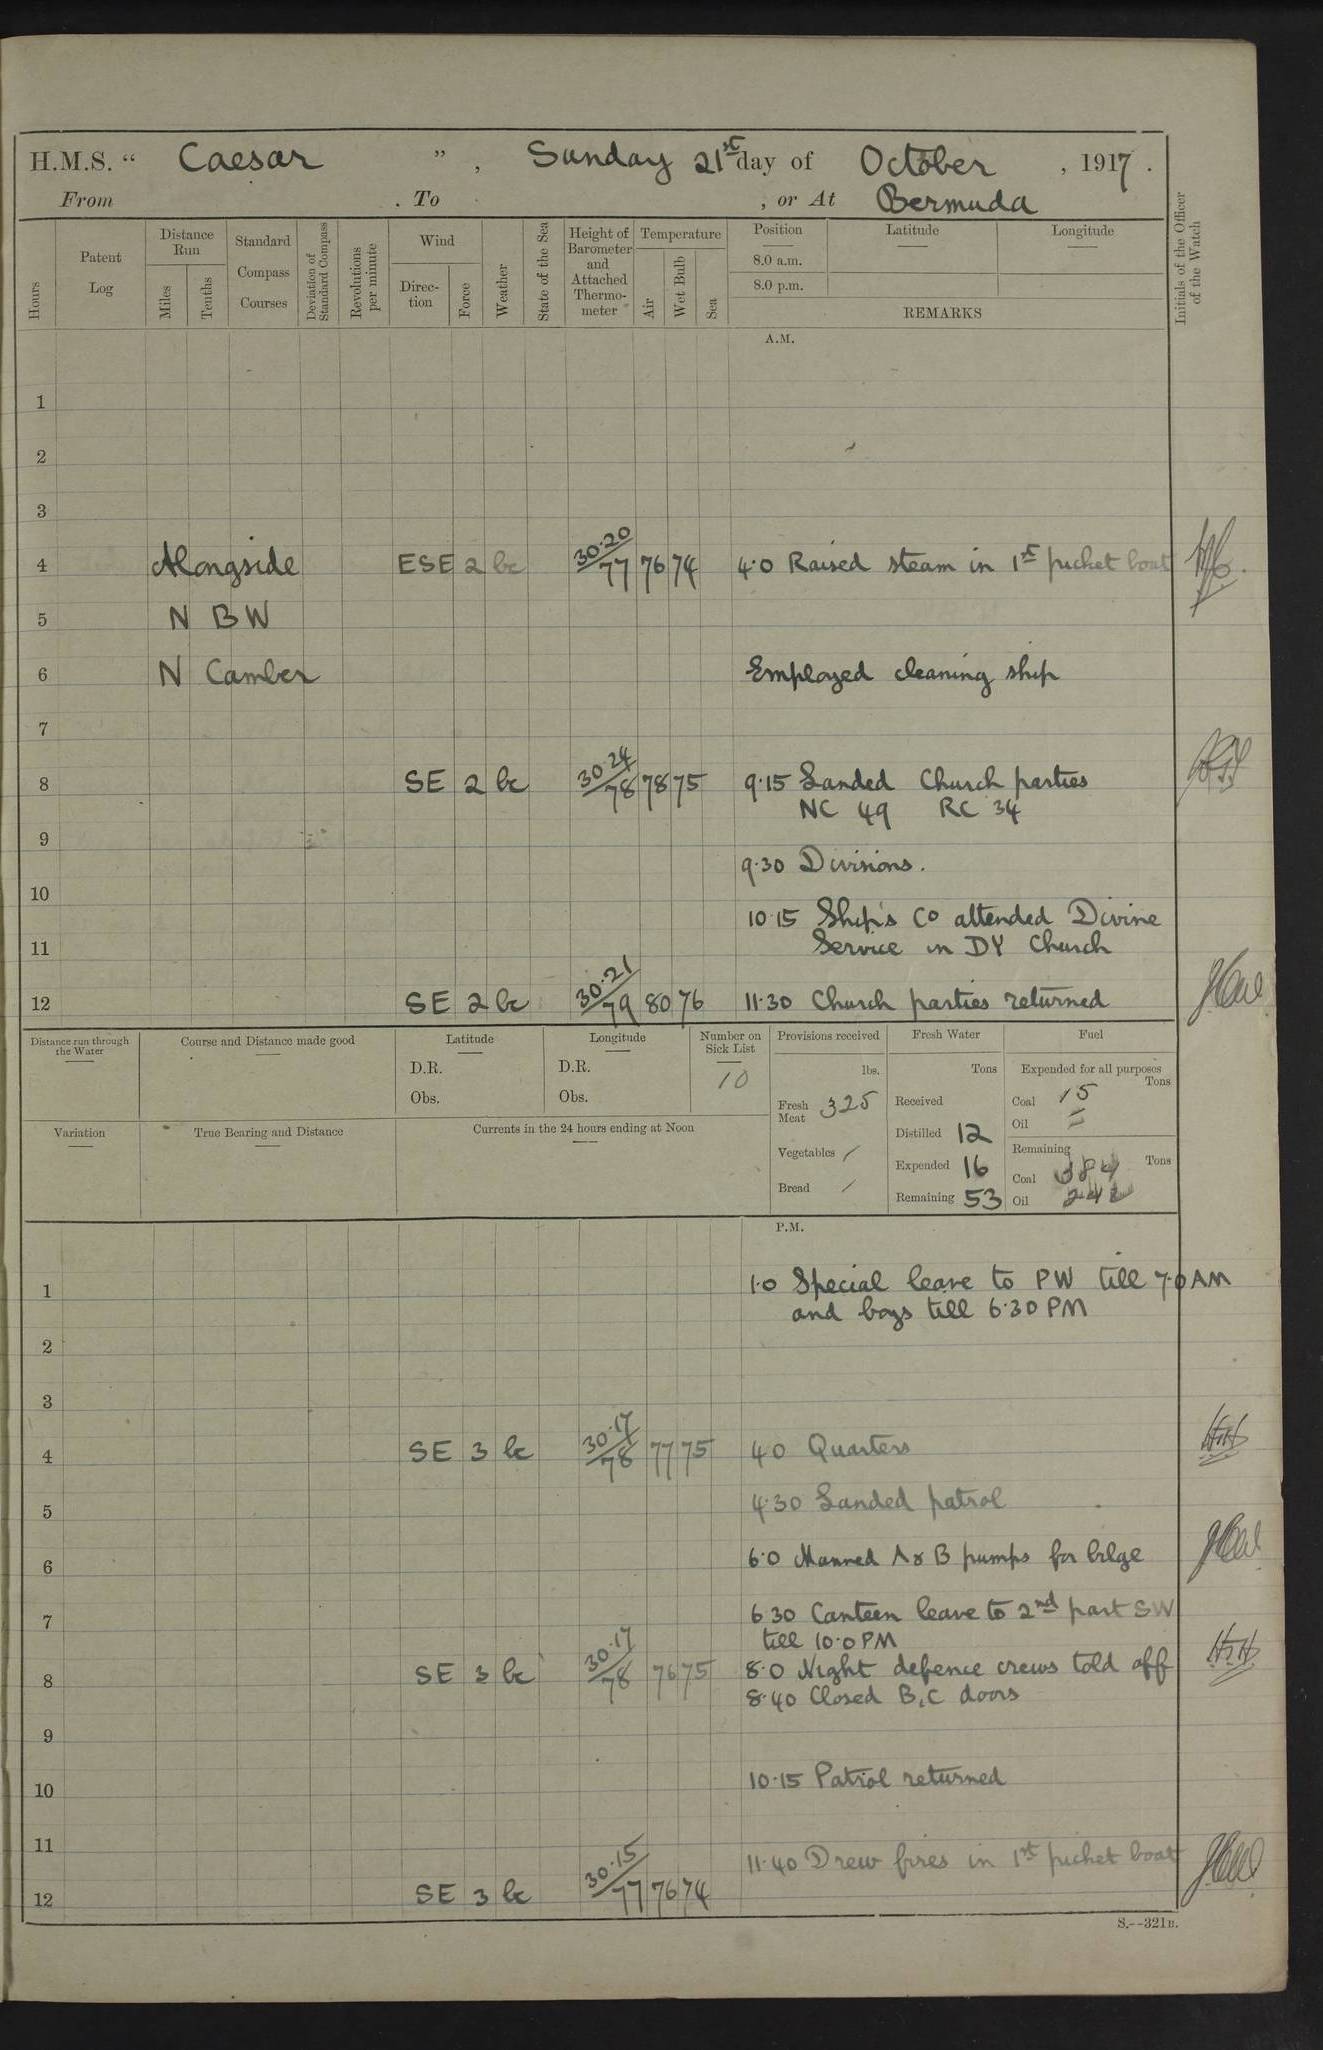 H.M.S. “ Caesar ” , Sunday 21st day of October , 1917 .
From . To , or At Bermuda
Hours
Patent Log
Distance Run
Miles
Tenths
Standard Compass Courses
Deviation of Standard Compass
Revolutions per minute
Wind
Direction
Force
Weather
State of the Sea
Height of Barometer and Attached Thermometer
Temperature
Air
Wet Bulb
Sea
Position
8.0 a.m.
8.0 p.m.
Latitude
Longitude
REMARKS
Initials of the Officer of the Watch
A.M.
1
2
3
4 Alongside ESE 2 bc 30·20/77 76 74 4·0 Raised steam in 1st picket boat
5 N B W
6 N Camber Employed cleaning ship
7
8 SE 2 bc 30·24/78 78 75 9·15 Landed Church parties
NC 49 RC 34
9
9·30 Divisions.
10
10·15 Ship's Co attended Divine
11 Service in DY Church
12 SE 2 bc 30·21/79 80 76 11·30 Church parties returned
Distance run through the Water
Course and Distance made good
Latitude
D.R.
Obs.
Longitude
D.R.
Obs.
Number on Sick List
10
Variation
True Bearing and Distance
Currents in the 24 hours ending at Noon
Provisions received
lbs.
Fresh Meat 325
Vegetables /
Bread /
Fresh Water
Tons
Received
Distilled 12
Expended 16
Remaining 53
Fuel
Expended for all purposes
Tons
Coal 15
Oil =
Remaining
Tons
Coal
Oil
P.M.
1 1·0 Special leave to PW till 7·0 AM
and boys till 6·30 PM
2
3
4 SE 3 bc 30·17/78 77 75 4·0 Quarters
5 4·30 Landed patrol
6 6·0 Manned A & B pumps for bilge
7 6·30 Canteen leave to 2nd part SW
till 10·0 PM
8 SE 3 bc 30·17/78 76 75 8·0 Night defence crews told off
8·40 Closed B, C doors
9
10 10·15 Patrol returned
11 11·40 Drew fires in 1st picket boat
12 SE 3 bc 30·15/77 76 74
S.--321B.